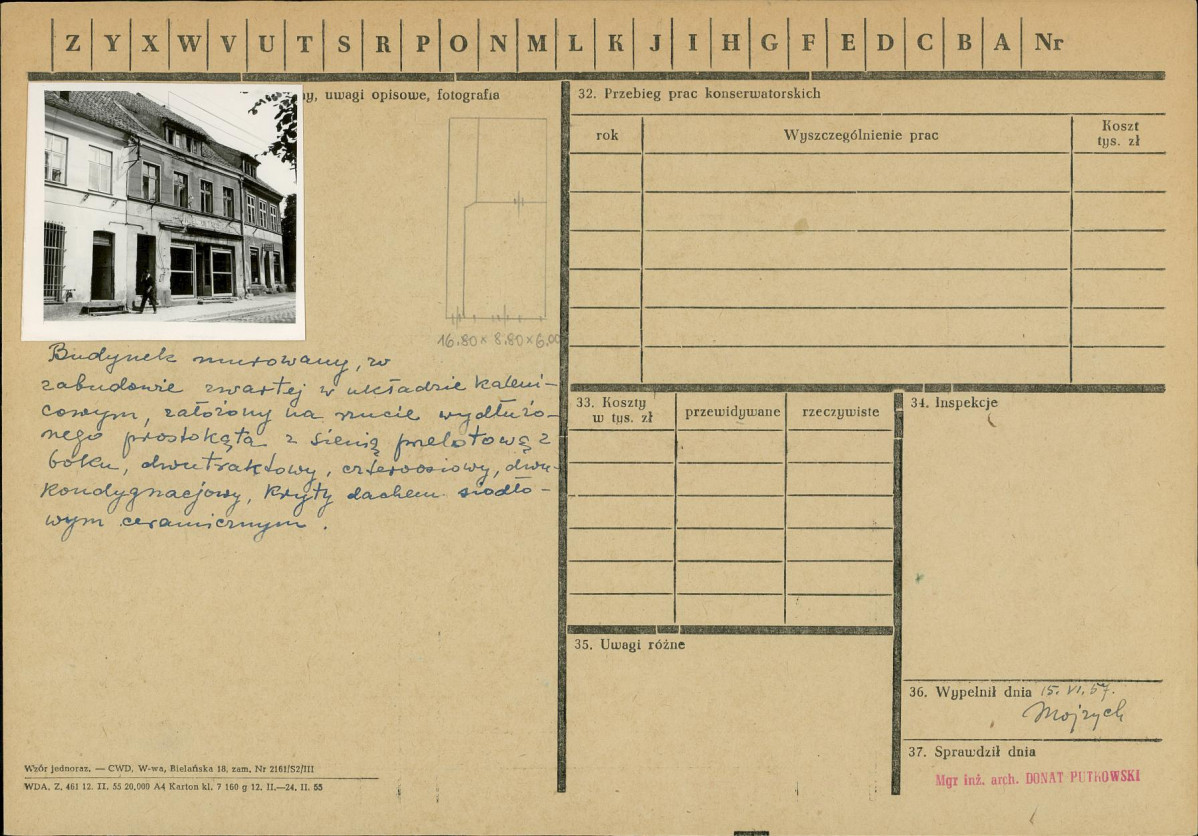 Z Y X W V U T S R P O N M L K J I H G F E D C B A Nr
ny, uwagi opisowe, fotografia
16.80 x 8.80 x 6.00
Budynek murowany, w
zabudowie zwartej w układzie kaleni-
cowym, założony na rzucie wydłużo-
nego prostokąta z sienią przelotową z
boku, dwutraktowy, czteroosiowy, dwu-
kondygnacjowy, kryty dachem siodło-
wym ceramicznym.
Wzór jednoraz. — CWD, W-wa, Bielańska 18, zam. Nr 2161/S2/III
WDA. Z. 461 12. II. 55 20,000 A4 Karton kl. 7 160 g 12. II.—24. II. 55
32. Przebieg prac konserwatorskich
rok
Wyszczególnienie prac
Koszt
tys. zł
33. Koszty
w tys. zł
przewidywane
rzeczywiste
34. Inspekcje
35. Uwagi różne
36. Wypełnił dnia 15. VI. 57.
Mojzych
37. Sprawdził dnia
Mgr inż. arch. DONAT PUTKOWSKI